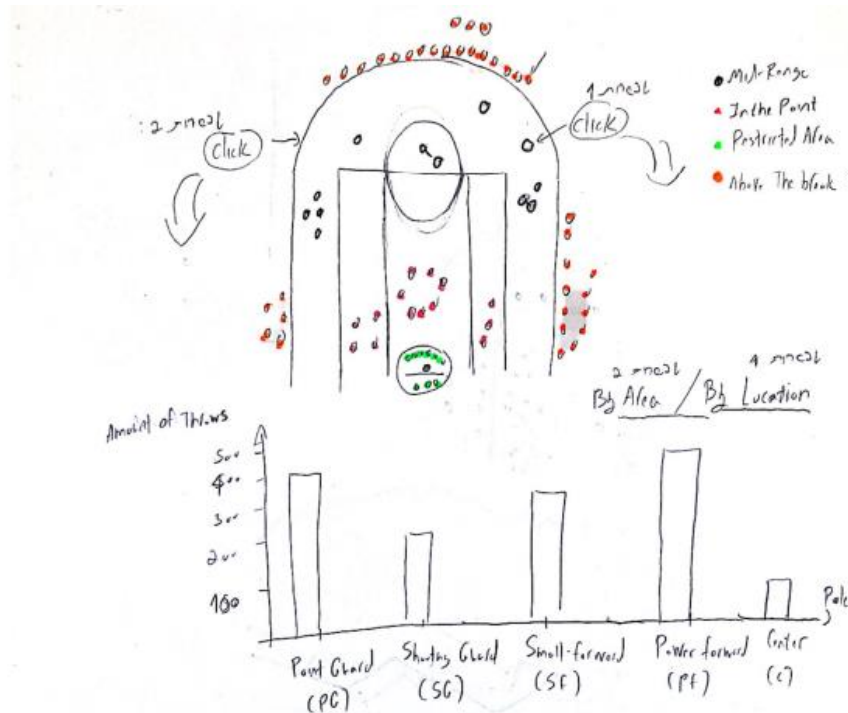 Mid-Range
In the Paint
Restricted Area
Above The break
click
click
By Area / By Location
Amount of Throws
500
400
300
200
100
Point Guard
(PG)
Shooting Guard
(SG)
Small-forward
(SF)
Power forward
(PF)
Center
(C)